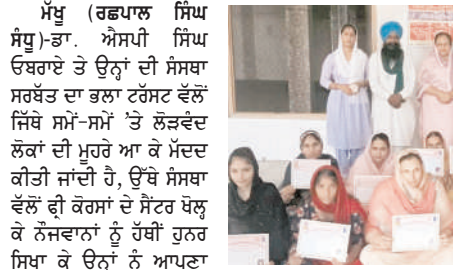 ਮੱਖੂ (ਰਛਪਾਲ ਸਿੰਘ
ਸੰਧੂ)-ਡਾ. ਐਸਪੀ ਸਿੰਘ
ਓਬਰਾਏ ਤੇ ਉਨ੍ਹਾਂ ਦੀ ਸੰਸਥਾ
ਸਰਬੱਤ ਦਾ ਭਲਾ ਟਰੱਸਟ ਵੱਲੋਂ
ਜਿੱਥੇ ਸਮੇਂ-ਸਮੇਂ 'ਤੇ ਲੋੜਵੰਦ
ਲੋਕਾਂ ਦੀ ਮੂਹਰੇ ਆ ਕੇ ਮੱਦਦ
ਕੀਤੀ ਜਾਂਦੀ ਹੈ, ਉੱਥੇ ਸੰਸਥਾ
ਵੱਲੋਂ ਫ੍ਰੀ ਕੋਰਸਾਂ ਦੇ ਸੈਂਟਰ ਖੋਲ੍ਹ
ਕੇ ਨੌਜਵਾਨਾਂ ਨੂੰ ਹੱਥੀਂ ਹੁਨਰ
ਸਿਖਾ ਕੇ ਉਨਾਂ ਨੂੰ ਆਪਣਾ